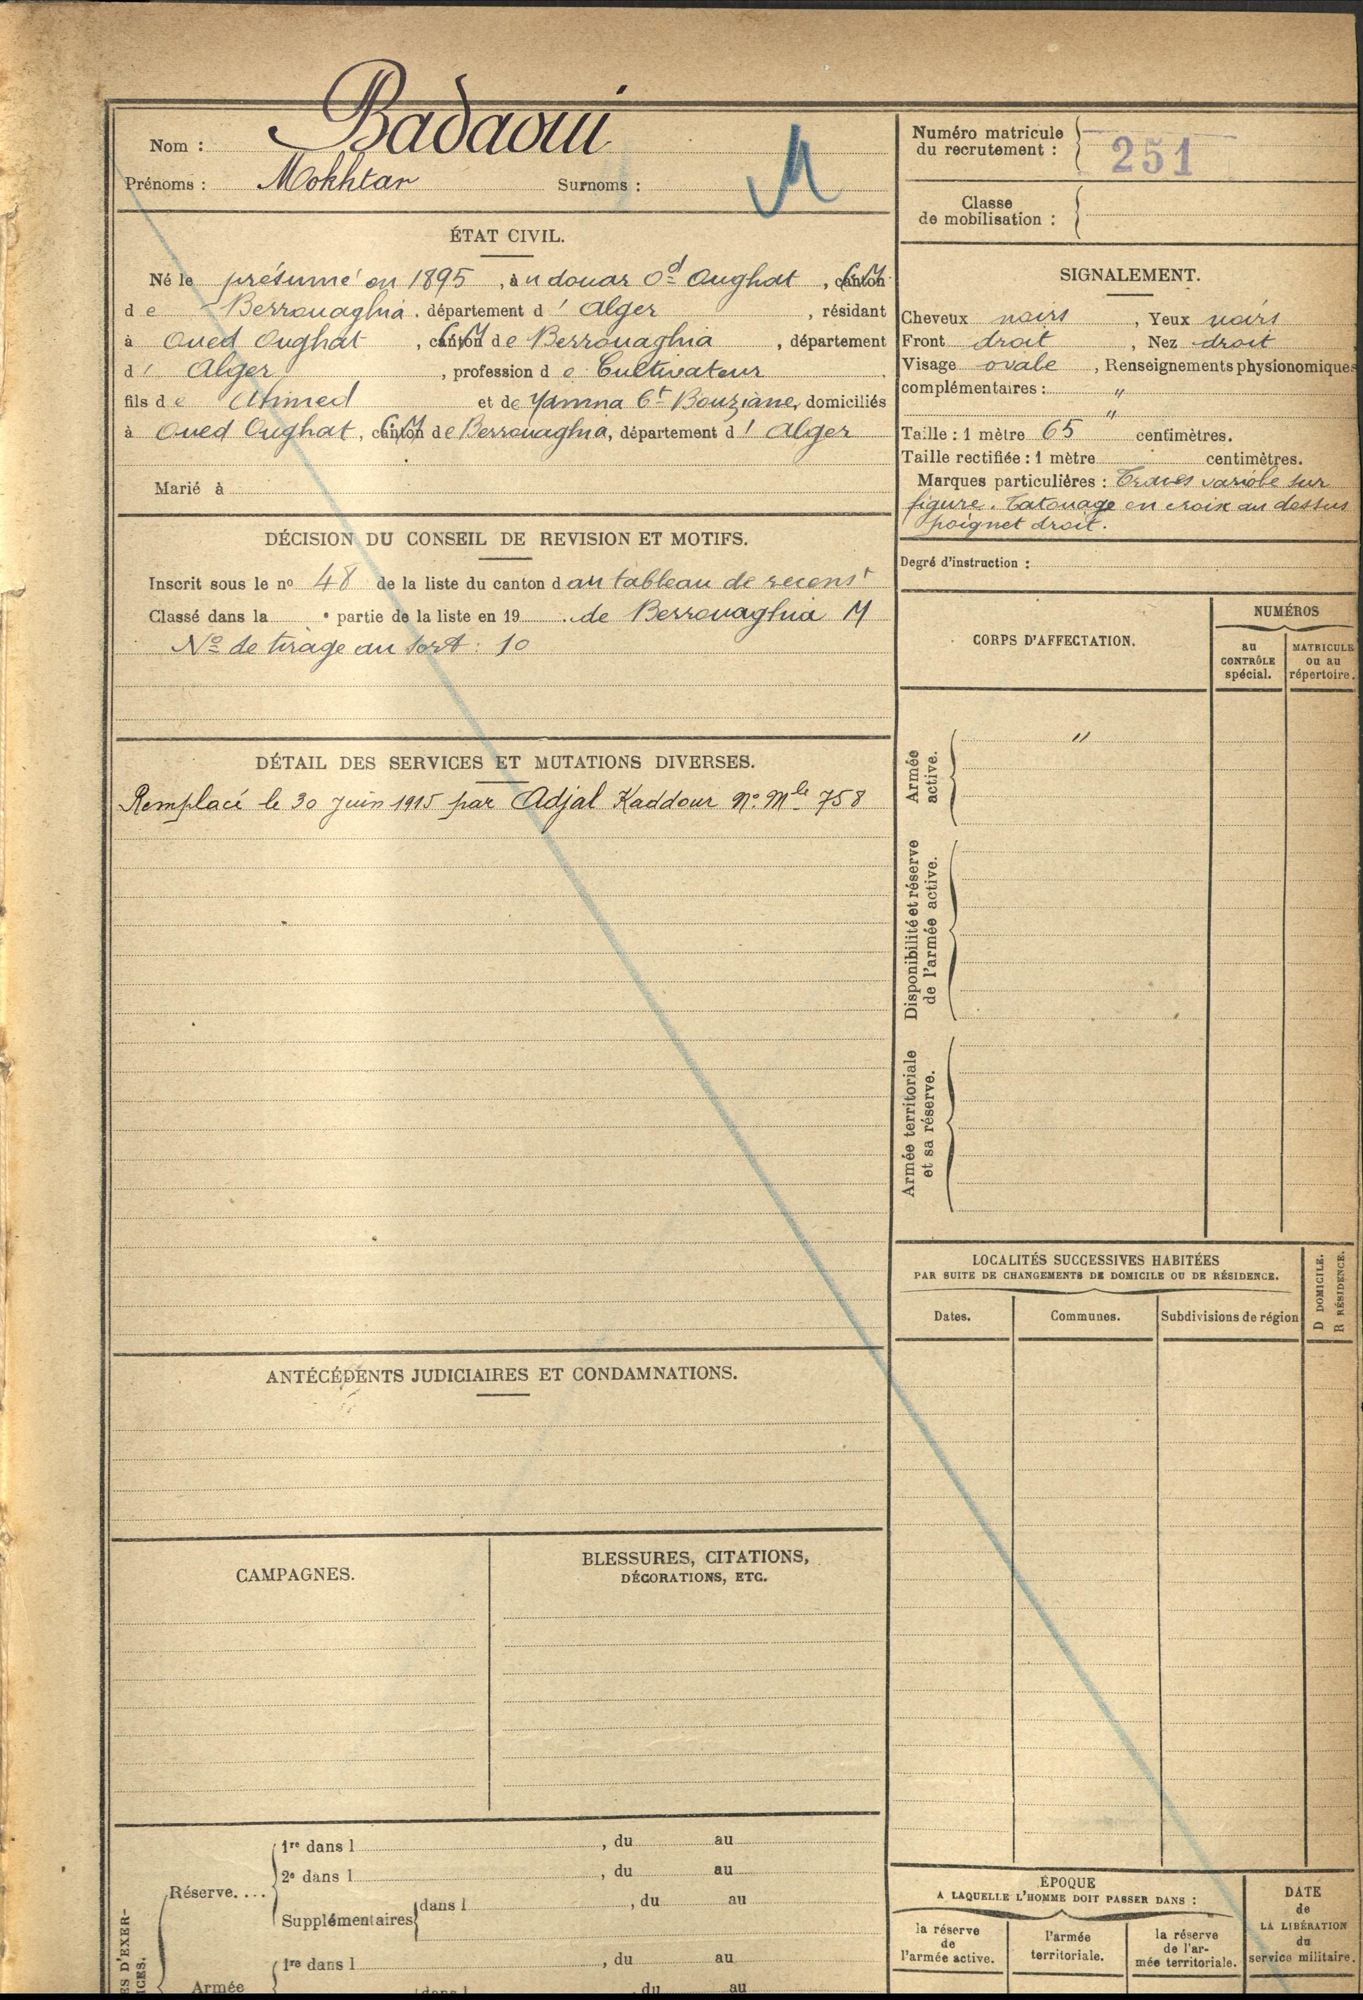 Nom : Badaoui
Prénoms : Mokhtar Surnoms : M
ÉTAT CIVIL.
Né le présumé en 1895, au douar Od Oughat, CM
de Berrouaghia, département d'Alger, résidant
à Oued Oughat, CM de Berrouaghia, département
d'Alger, profession de Cultivateur
fils de Ahmed et de Yamna Ct Bouziane, domiciliés
à Oued Oughat, CM de Berrouaghia, département d'Alger
Marié à
DÉCISION DU CONSEIL DE REVISION ET MOTIFS.
Inscrit sous le no 48 de la liste du canton d au tableau de recenst
Classé dans la e partie de la liste en 19 . de Berrouaghia M
No de tirage au sort : 10
DÉTAIL DES SERVICES ET MUTATIONS DIVERSES.
Remplacé le 30 Juin 1915 par Adjal Kaddour No Mle 758
ANTÉCÉDENTS JUDICIAIRES ET CONDAMNATIONS.
CAMPAGNES.
BLESSURES, CITATIONS,
DÉCORATIONS, ETC.
Réserve....
1re dans l , du au
2e dans l , du au
Supplémentaires dans l , du au
ES D'EXER-
ICES.
Armée
1re dans l , du au
dans l , du au
Numéro matricule
du recrutement : 251
Classe
de mobilisation :
SIGNALEMENT.
Cheveux noirs, Yeux noirs
Front droit, Nez droit
Visage ovale, Renseignements physionomiques
complémentaires : "
"
Taille : 1 mètre 65 centimètres.
Taille rectifiée : 1 mètre centimètres.
Marques particulières : variole sur
figure. Tatouage en croix au dessus
poignet droit.
Degré d'instruction :
CORPS D'AFFECTATION.
NUMÉROS
au
CONTRÔLE
spécial.
MATRICULE
ou au
répertoire.
Armée
active.
"
Disponibilité et réserve
de l'armée active.
Armée territoriale
et sa réserve.
LOCALITÉS SUCCESSIVES HABITÉES
PAR SUITE DE CHANGEMENTS DE DOMICILE OU DE RÉSIDENCE.
D DOMICILE.
R RÉSIDENCE.
Dates. Communes. Subdivisions de région
ÉPOQUE
A LAQUELLE L'HOMME DOIT PASSER DANS :
la réserve
de
l'armée active.
l'armée
territoriale.
la réserve
de l'ar-
mée territoriale.
DATE
de
LA LIBÉRATION
du
service militaire.